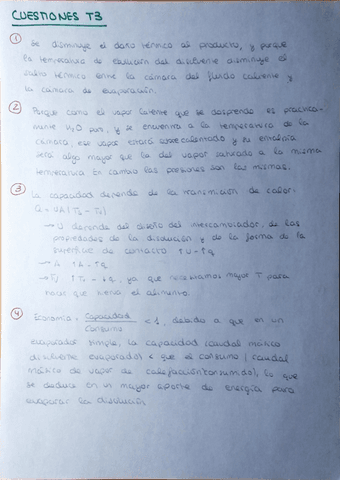 CUESTIONES T3
① Se disminuye el daño térmico al producto, y porque
la temperatura de ebullición del disolvente disminuye el
salto térmico entre la cámara del fluido caliente y
la cámara de evaporación.
② Porque como el vapor caliente que se desprende es práctica-
mente H2O pura, y se encuentra a la temperatura de la
cámara, ese vapor estará sobrecalentado y su entalpía
será algo mayor que la del vapor saturado a la misma
temperatura. En cambio las presiones son las mismas.
③ La capacidad depende de la transmisión de calor:
Q = UA(Ts - T1)
→ U depende del diseño del intercambiador, de las
propiedades de la disolución y de la forma de la
superficie de contacto ↑U → ↑q
→ A ↑A → ↑q
→ T1 ↑T1 → ↓q, ya que necesitamos mayor T para
hacer que hierva el alimento.
④ Economía = Capacidad / Consumo < 1, debido a que en un
evaporador simple, la capacidad (caudal másico
disolvente evaporado) < que el consumo (caudal
másico de vapor de calefacción consumido), lo que
se deduce en un mayor aporte de energía para
evaporar la disolución.